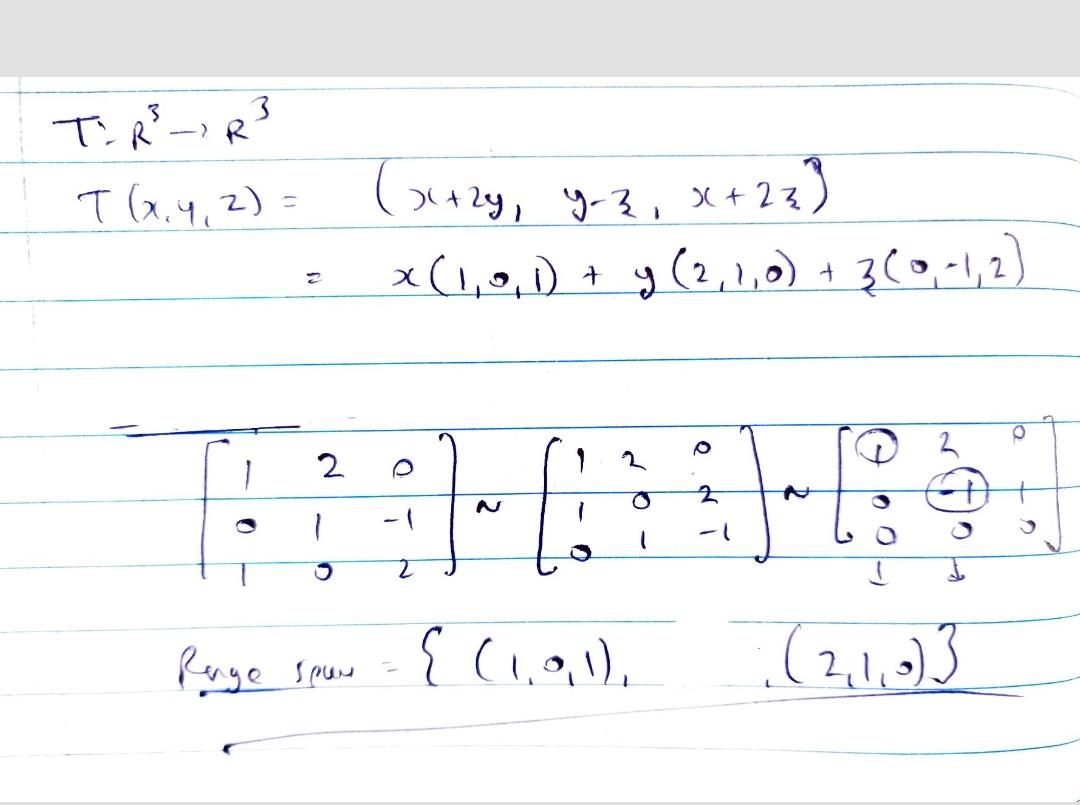 T: R³ → R³
T (x, y, z) = (x+2y, y-z, x+2z)
= x(1,0,1) + y(2,1,0) + z(0,-1,2)
[1 2 0 ~ [1 2 0 ~ [1 2 0
0 1 -1] 1 0 2] 0 -1 1]
1 0 2 0 1 -1 0 0 0
↓ ↓
Range span = { (1,0,1), , (2,1,0)}